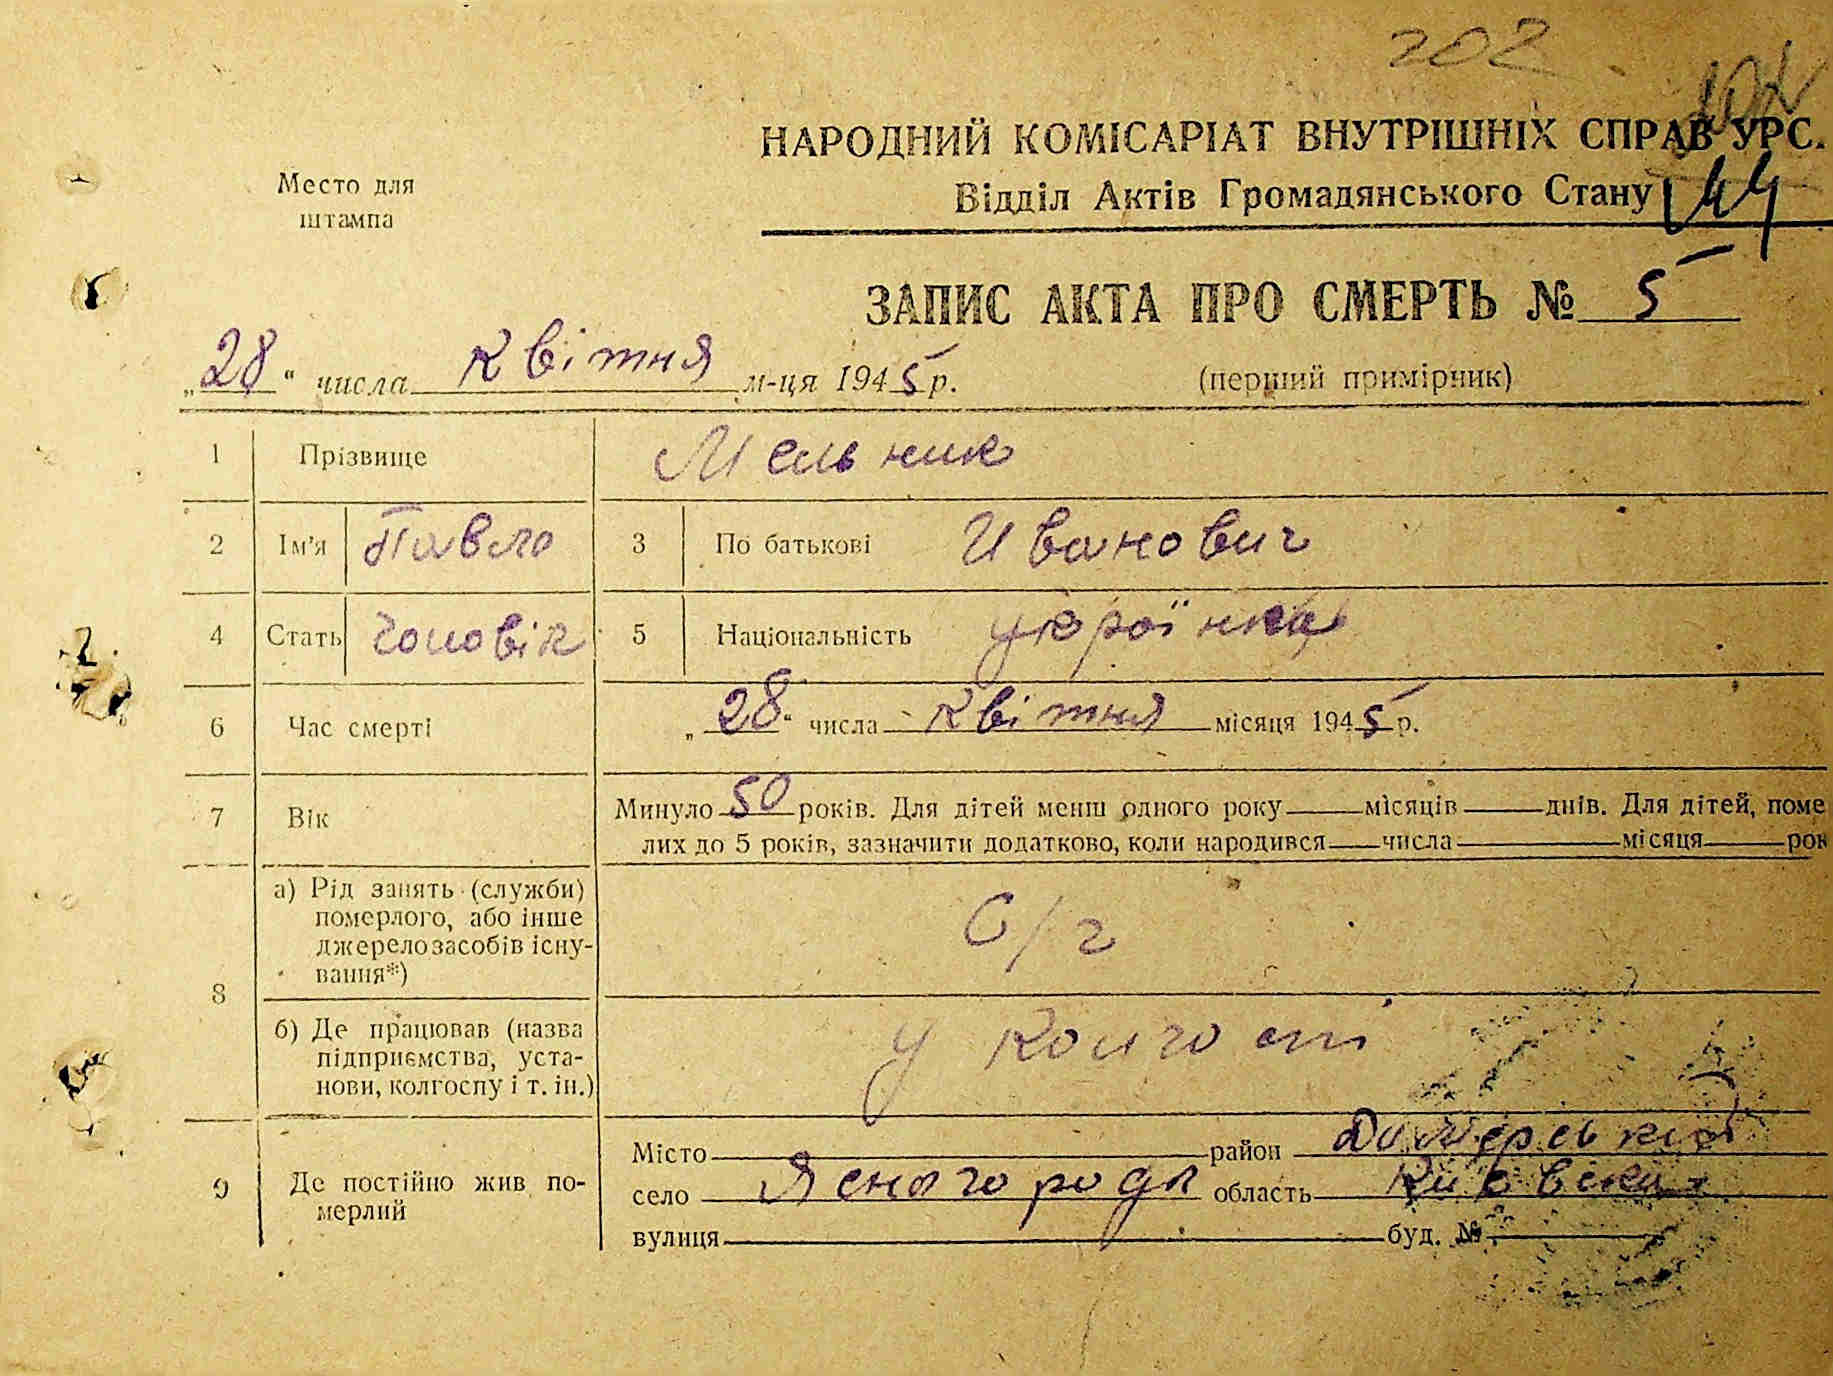 202
НАРОДНИЙ КОМІСАРІАТ ВНУТРІШНІХ СПРАВ УРС.
Место для
штампа
Відділ Актів Громадянського Стану
144
ЗАПИС АКТА ПРО СМЕРТЬ № 5
„28“ числа квітня м-ця 1945 р. (перший примірник)
1 Прізвище Мельник
2 Ім'я Павло 3 По батькові Иванович
4 Стать чоловік 5 Національність
6 Час смерті „28“ числа квітня місяця 1945 р.
7 Вік Минуло 50 років. Для дітей менш одного року місяців днів. Для дітей, поме
лих до 5 років, зазначити додатково, коли народився числа місяця рок
8 а) Рід занять (служби)
померлого, або інше
джерело засобів існу-
вання*)
С/г
б) Де працював (назва
підприємства, уста-
нови, колгоспу і т. ін.)
у колгоспі
9 Де постійно жив по-
мерлий
Місто район Димерський
село Ясногородка область Київська
вулиця буд. №